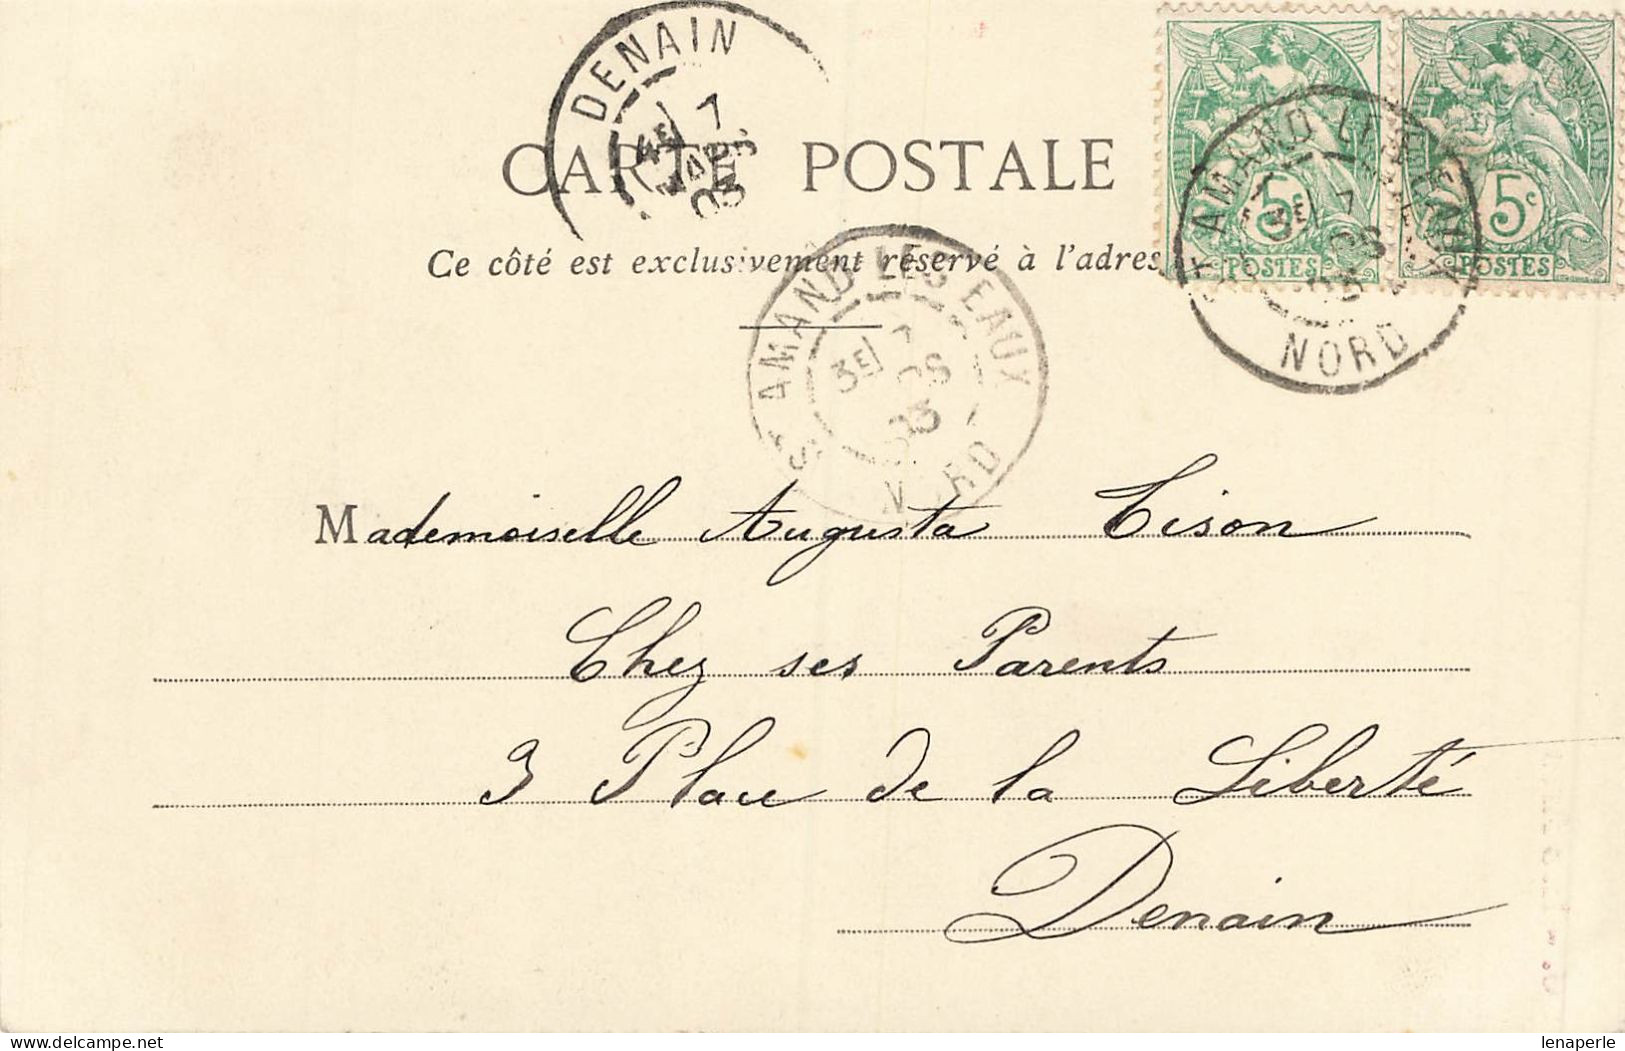 DENAIN
4E 7
MARS
03
CARTE POSTALE
Ce côté est exclusivement réservé à l'adres
FRANÇAISE
5c
5c
POSTES
POSTES
ST AMAND LES EAUX
3E 7
03
NORD
ST AMAND LES EAUX
3E 7
03
NORD
Mademoiselle Augusta Tison
Chez ses Parents
3 Place de la Liberté
Denain
lenaperle